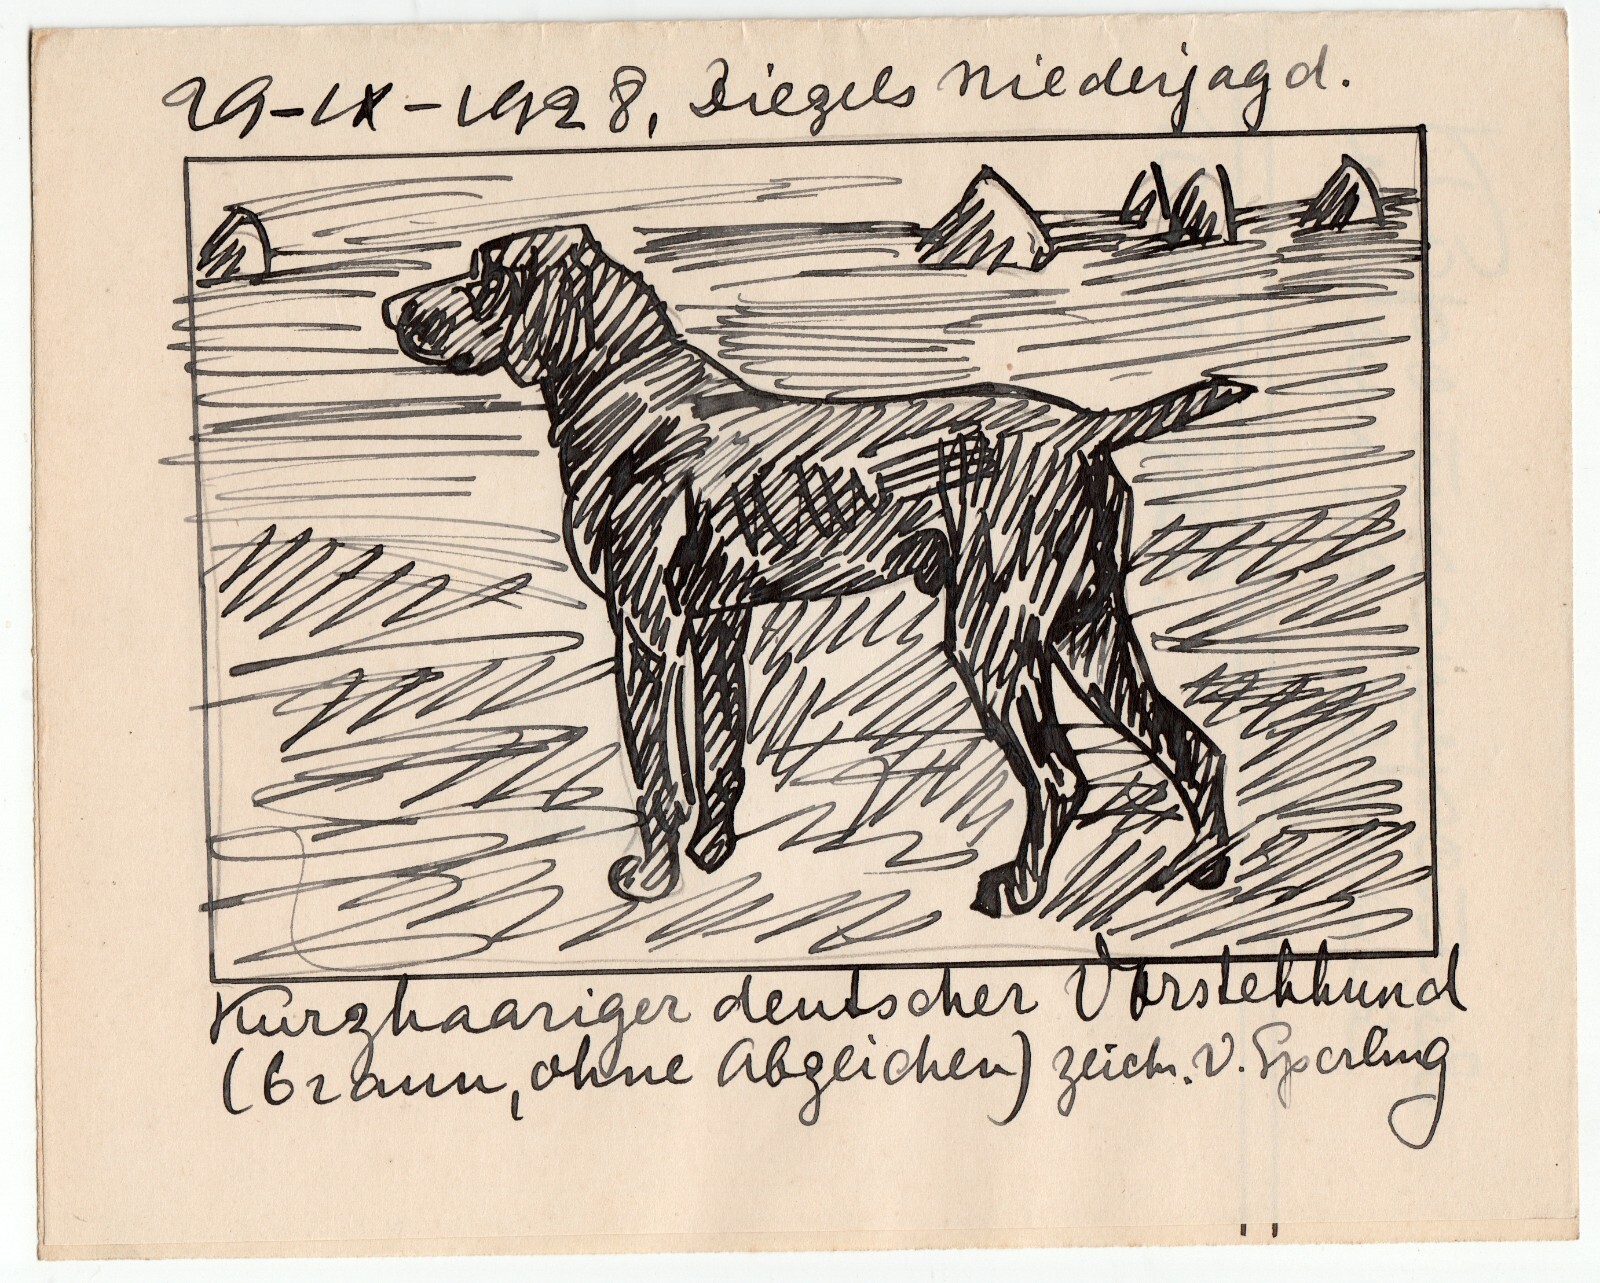 29-IX-1928, Diezels Niederjagd.
Kurzhaariger deutscher Vorstehhund
(braun, ohne Abzeichen) zeichn. v. Sperling